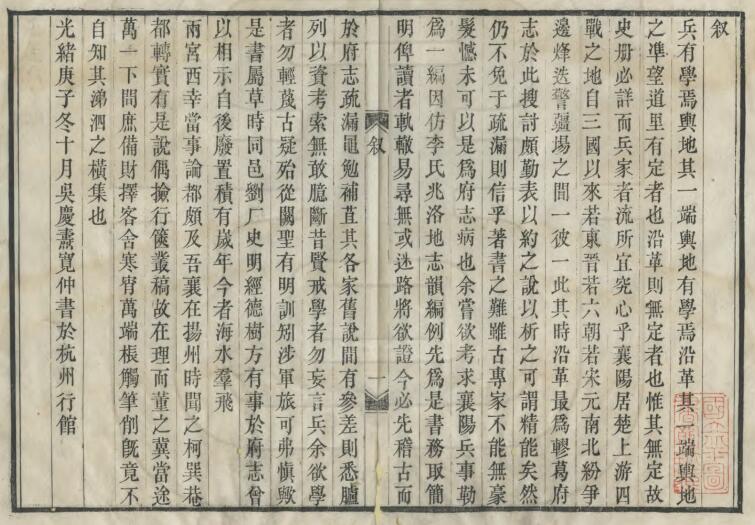 叙
兵有學焉輿地其一端輿地有學焉沿革其一端輿地
之準望道里有定者也沿革則無定者也惟其無定故
史册必詳而兵家者流所宜究心乎襄陽居楚上游四
戰之地自三國以來若東晉若六朝若宋元南北紛爭
邊烽迭警疆場之間一彼一此其時沿革最爲轇葛府
志於此搜討頗勤表以約之說以析之可謂精能矣然
仍不免于疏漏則信乎著書之難雖古專家不能無豪
髮憾未可以是爲府志病也余嘗欲考求襄陽兵事勒
爲一編因仿李氏兆洛地志韻編例先爲是書務取簡
明俾讀者軌轍易尋無或迷路將欲證今必先稽古而
叙
一
於府志疏漏黽勉補苴其各家舊說間有參差則悉臚
列以資考索無敢臆斷昔賢戒學者勿妄言兵余欲學
者勿輕蔑古疑殆從闕聖有明訓矧涉軍旅可弗愼歟
是書屬草時同邑劉厂史明經德樹方有事於府志曾
以相示自後廢置積有歲年今者海水羣飛
兩宮西幸當事論都頗及吾襄在揚州時聞之柯巽菴
都轉實有是說偶撿行篋叢稿故在理而董之冀當途
萬一下問庶備財擇客舍寒宵萬端棖觸筆削旣竟不
自知其涕泗之橫集也
光緒庚子冬十月吳慶燾寬仲書於杭州行館